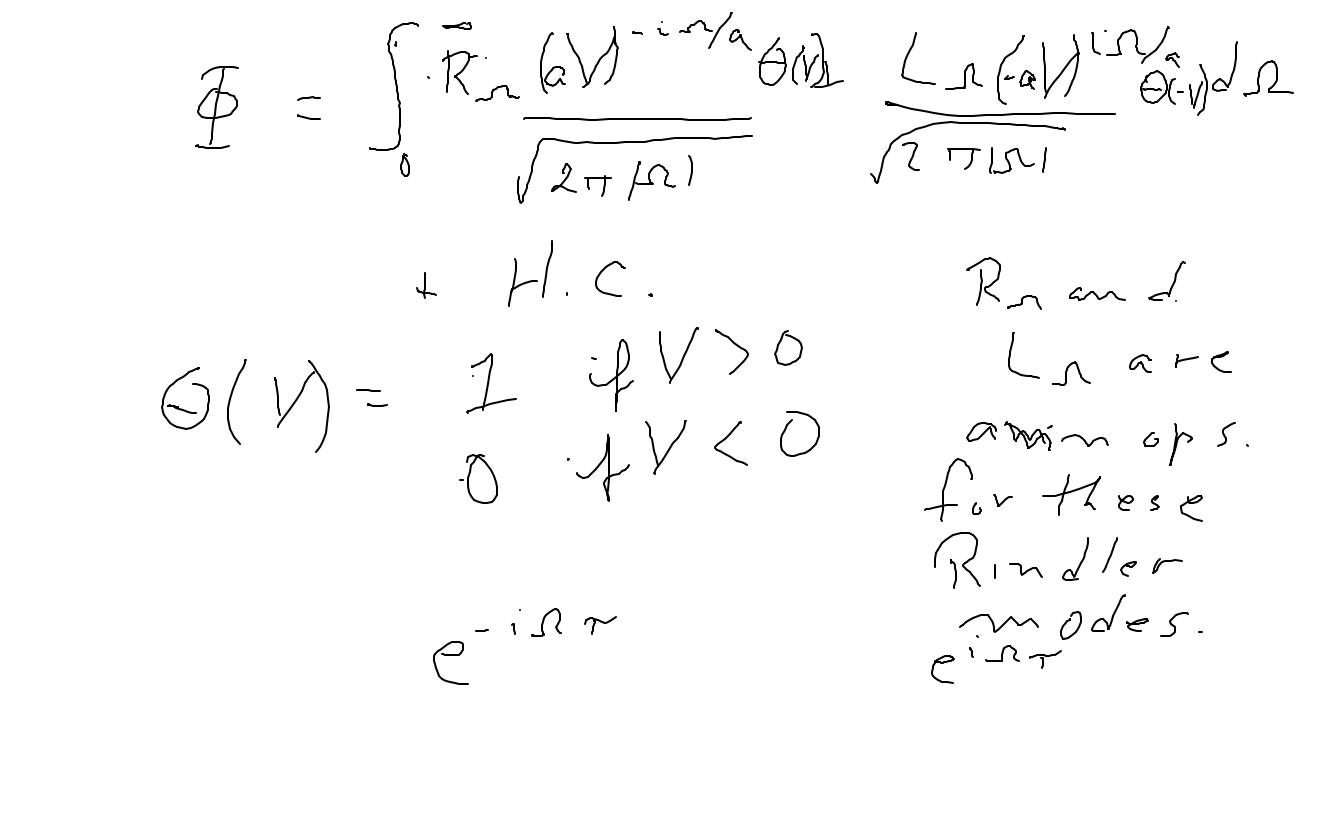 Φ = ∫₀^∞ R_Ω (aV)^{-iΩ/a} θ(V) / √(2π|Ω|) L_Ω (-aV)^{iΩ/a} θ(-V) / √(2π|Ω|) dΩ
+ H.C.
θ(V) = 1 if V > 0
0 if V < 0
R_Ω and
L_Ω are
ops.
for these
Rindler
modes.
e^{-iΩτ}
e^{iΩτ}